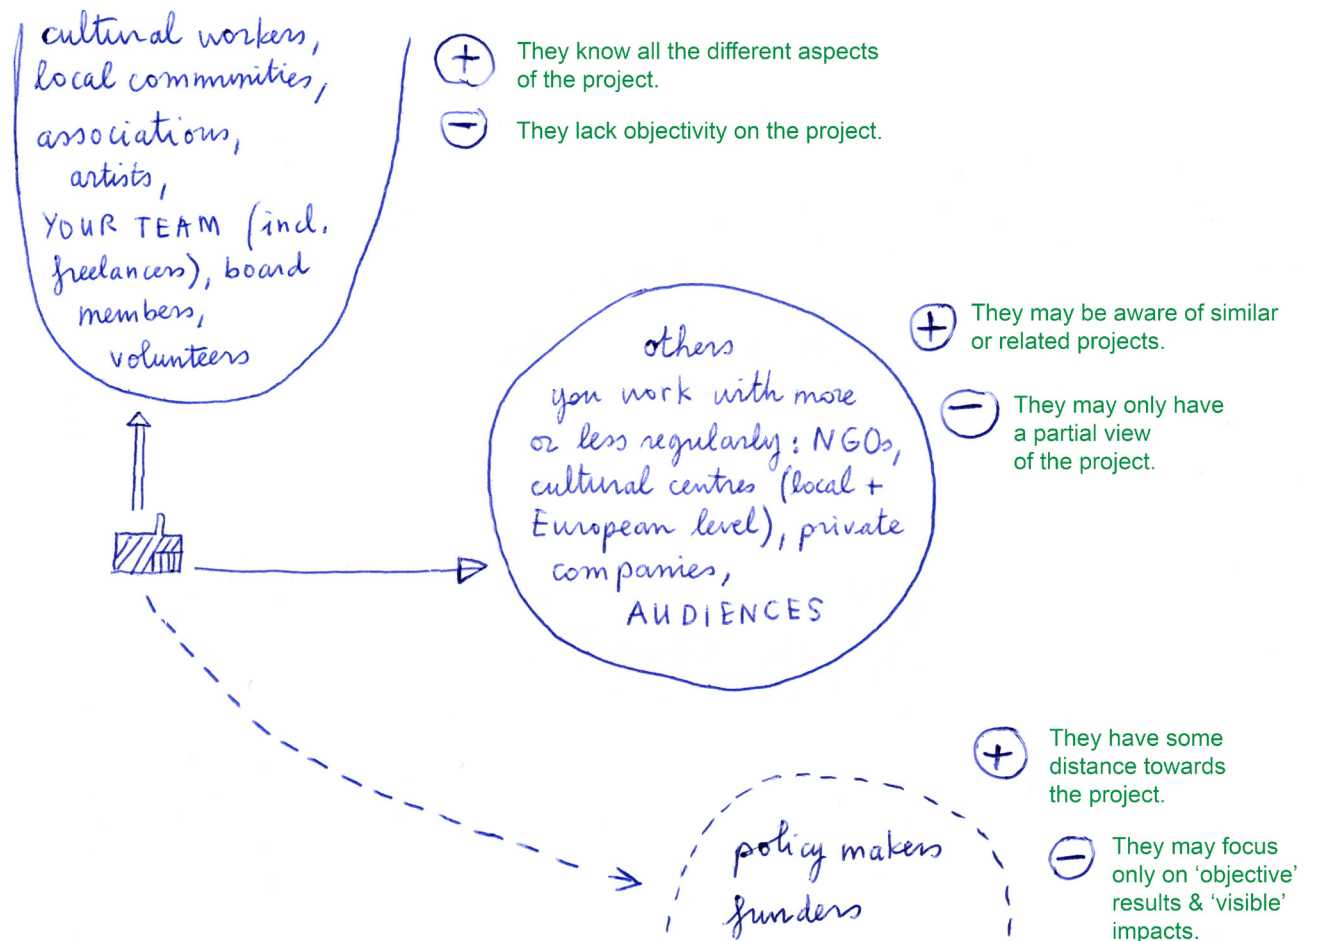 cultural workers,
local communities,
associations,
artists,
YOUR TEAM (incl.
freelancers), board
members,
volunteers
+
They know all the different aspects
of the project.
−
They lack objectivity on the project.
others
you work with more
or less regularly: NGOs,
cultural centres (local +
European level), private
companies,
AUDIENCES
+
They may be aware of similar
or related projects.
−
They may only have
a partial view
of the project.
policy makers
funders
+
They have some
distance towards
the project.
−
They may focus
only on ‘objective’
results & ‘visible’
impacts.